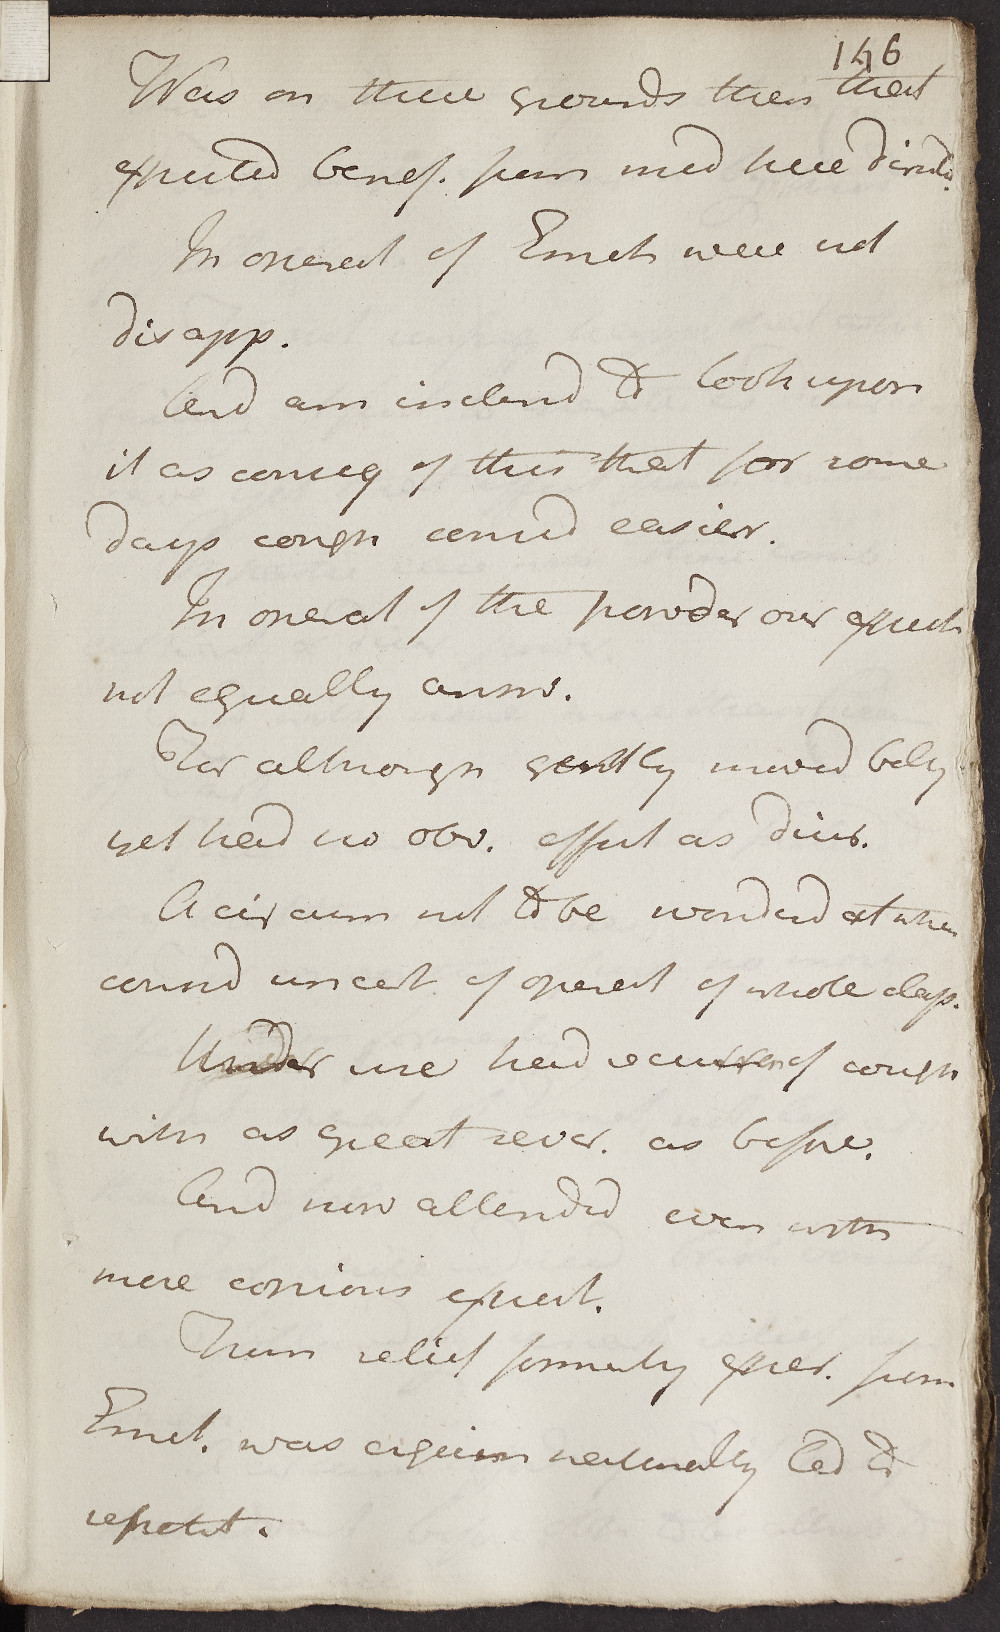 146
Was on these grounds then that
expected benef. from med here directd.
In operat of Emet were not
disapp.
And am inclend to look upon
it as conseq of this that for some
days cough contind easier.
In operat of the powder our expect
not equally answ.
For although gently moved belly
yet had no obv. effect as diur.
A circum not to be wondered at when
consid uncert of operat of whole class.
Under use had recurren of cough
with as great sever. as before.
And now attended even with
more copious expect.
From relief formerly exper. from
Emet. was again naturally led to
repetit.